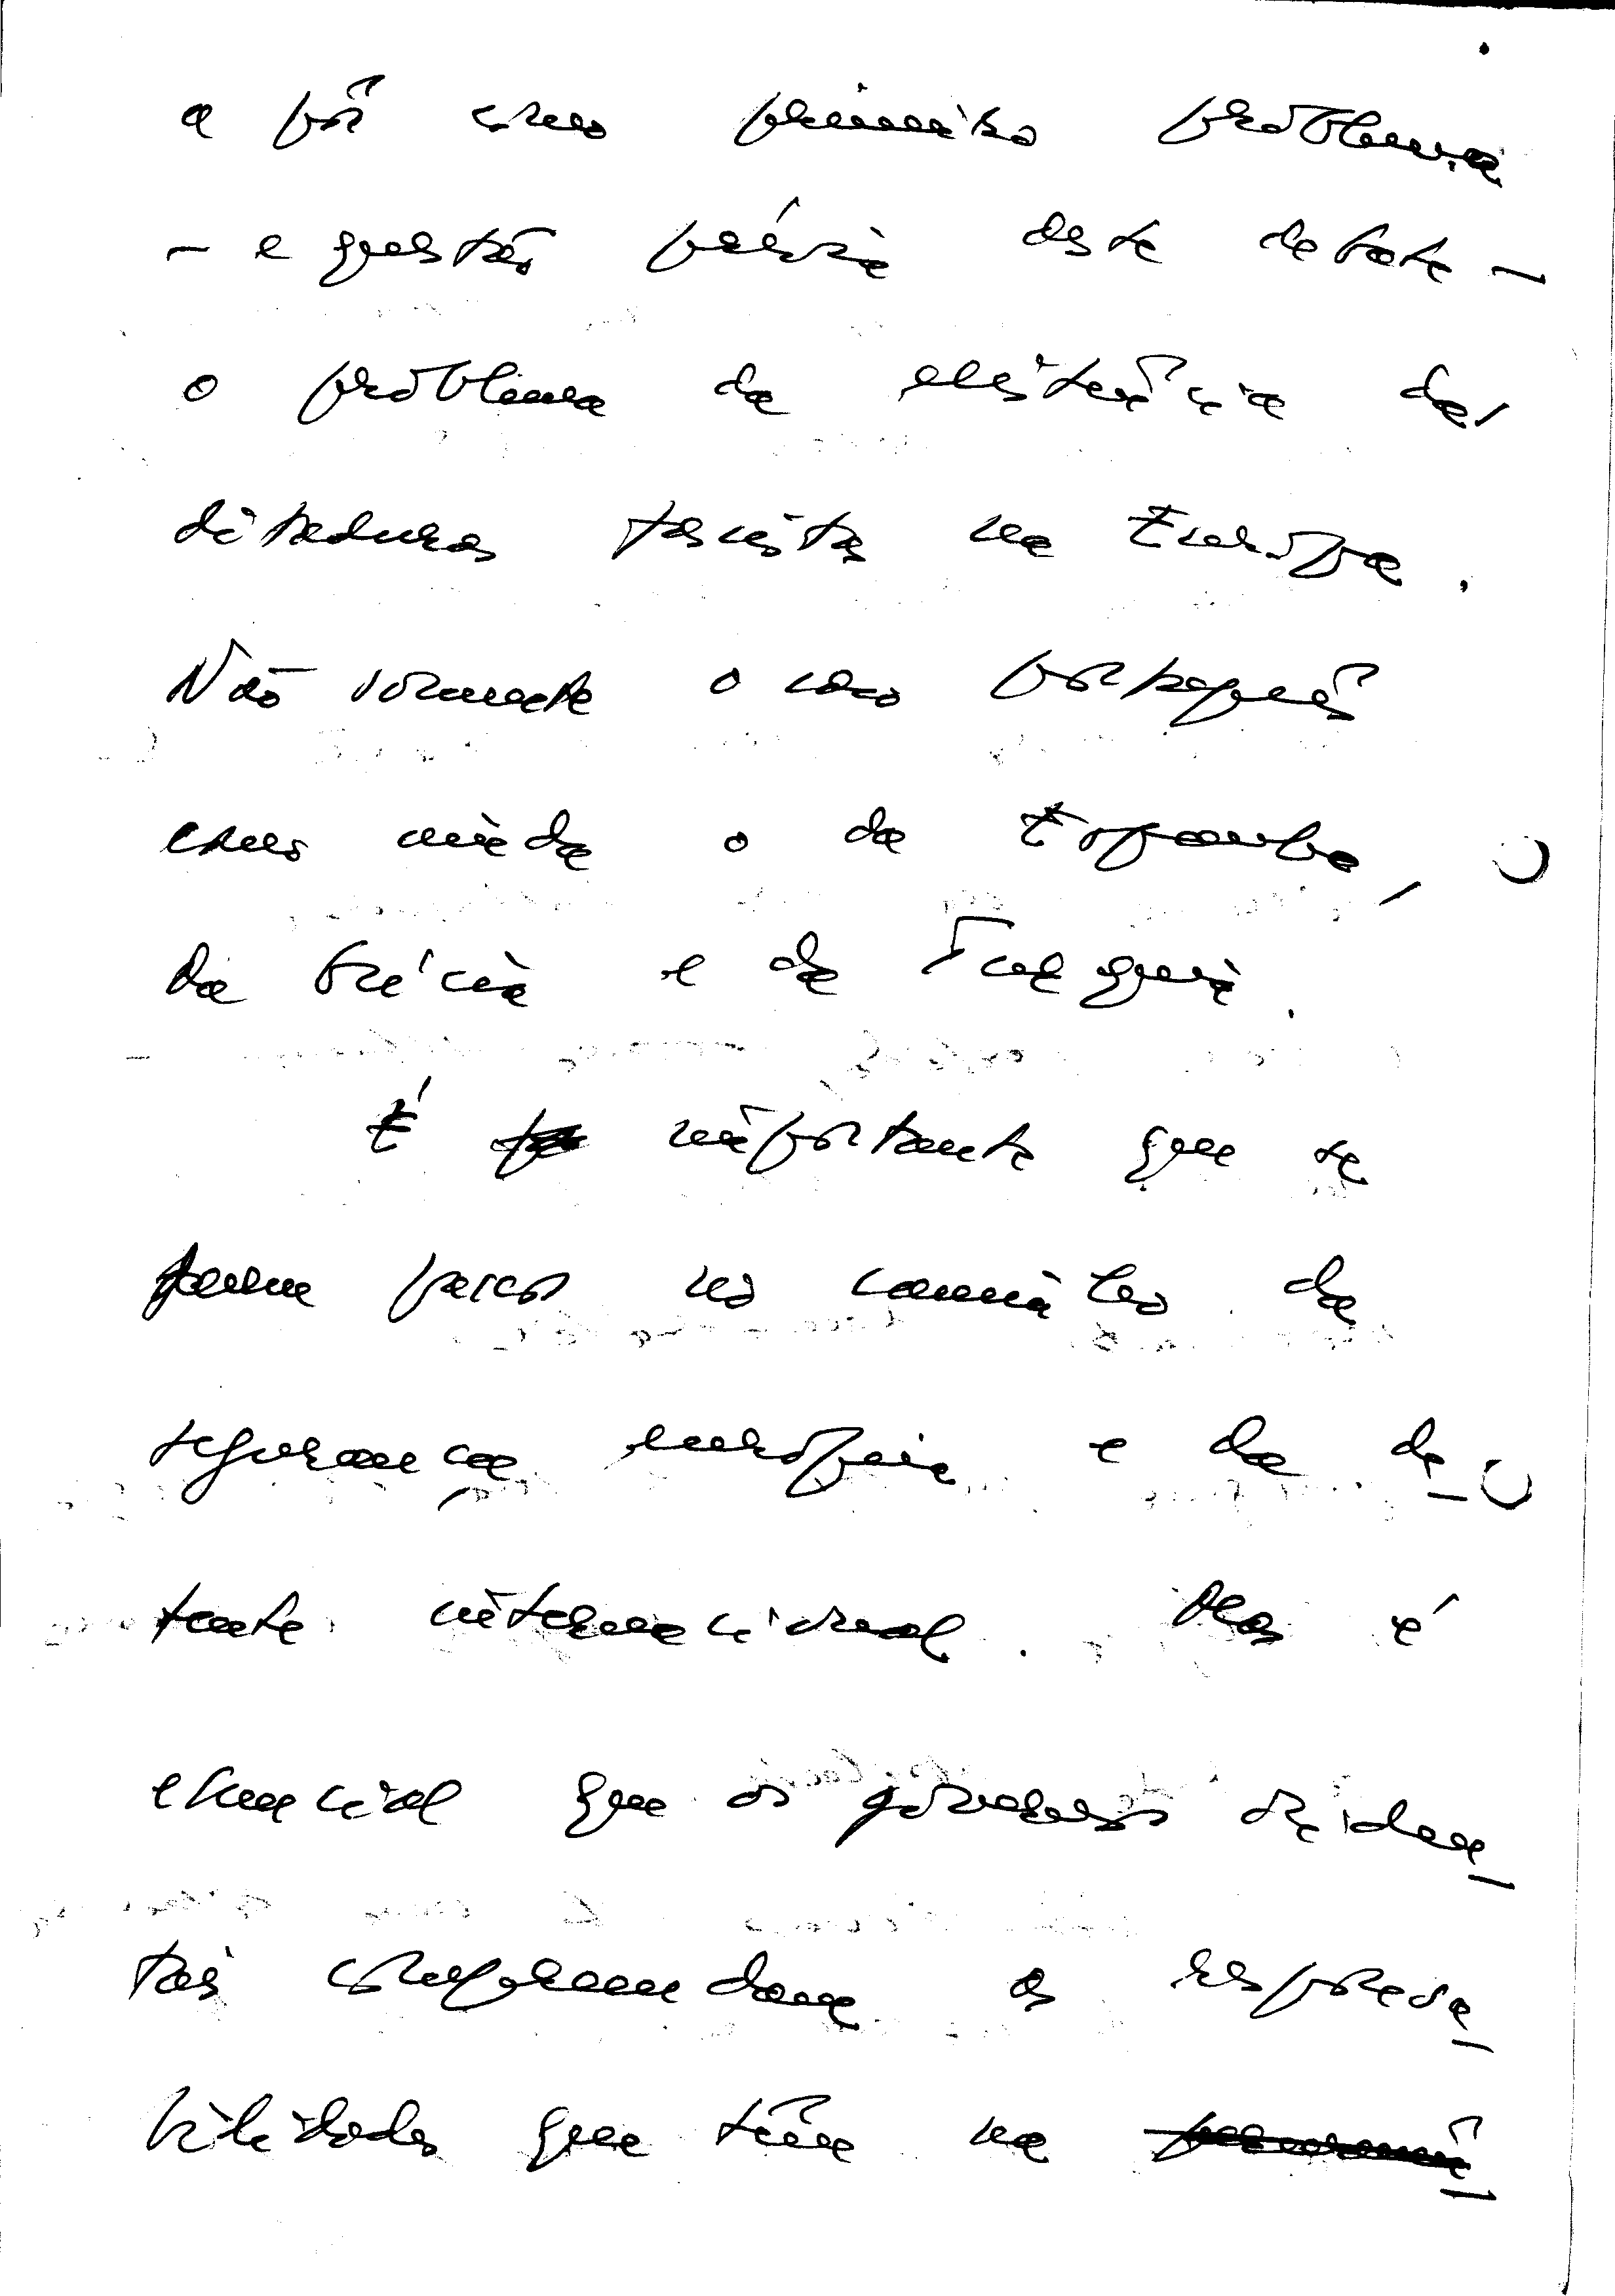 a pôr como primeiro problema
— a questão prévia deste debate —
o problema da existência das
ditaduras fascistas na Europa.
Não somente o caso português
como ainda o da Espanha,
da Grécia e da Turquia.
É importante que se
passos no caminho da
segurança europeia e da de_
tente internacional. Mas é
essencial que os governos ociden_
tais compreendam as responsa_
bilidades que têm na